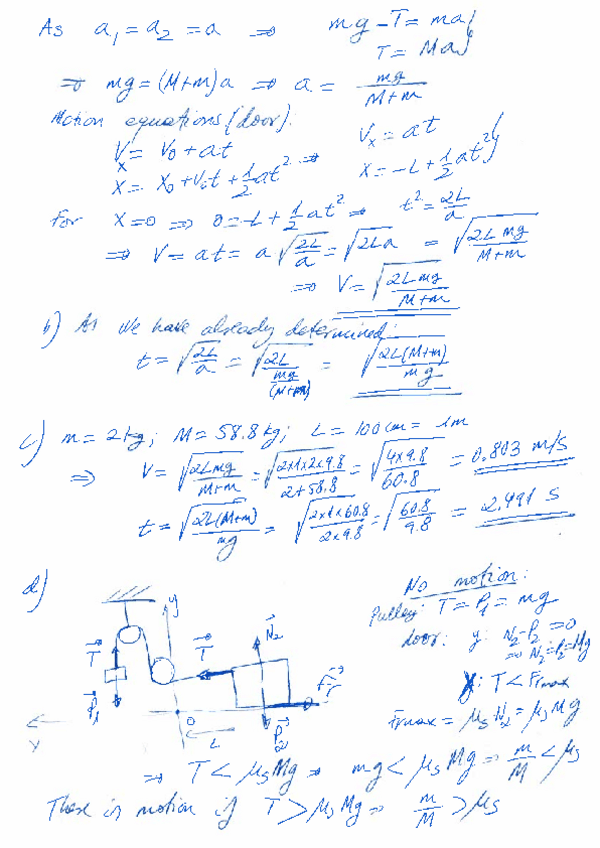 As a₁ = a₂ = a ⇒ mg - T = ma
T = Ma
⇒ mg = (M+m)a ⇒ a = mg/(M+m)
Motion equations (door):
Vx = V₀ + at ⇒ Vx = at
X = X₀ + V₀t + 1/2 at² X = -L + 1/2 at²
For X=0 ⇒ 0 = -L + 1/2 at² ⇒ t² = 2L/a
⇒ V = at = a √(2L/a) = √(2La) = √(2Lmg/(M+m))
⇒ V = √(2Lmg/(M+m))
b) As we have already determined:
t = √(2L/a) = √(2L/(mg/(M+m))) = √(2L(M+m)/mg)
c) m = 2kg; M = 58.8kg; L = 100cm = 1m
⇒ V = √(2Lmg/(M+m)) = √(2×1×2×9.8/(2+58.8)) = √(4×9.8/60.8) = 0.803 m/s
t = √(2L(M+m)/mg) = √(2×1×60.8/(2×9.8)) = √(60.8/9.8) = 2.491 s
d)
No motion:
Pulley: T = P₁ = mg
door: y: N₂-P₂ = 0
⇒ N₂ = P₂ = Mg
X: T < Frmax
Frmax = μs N₂ = μs Mg
y
T
T
N₂
Fr
P₁
P₂
0
L
X
⇒ T < μs Mg ⇒ mg < μs Mg ⇒ m/M < μs
There is motion if T > μs Mg ⇒ m/M > μs